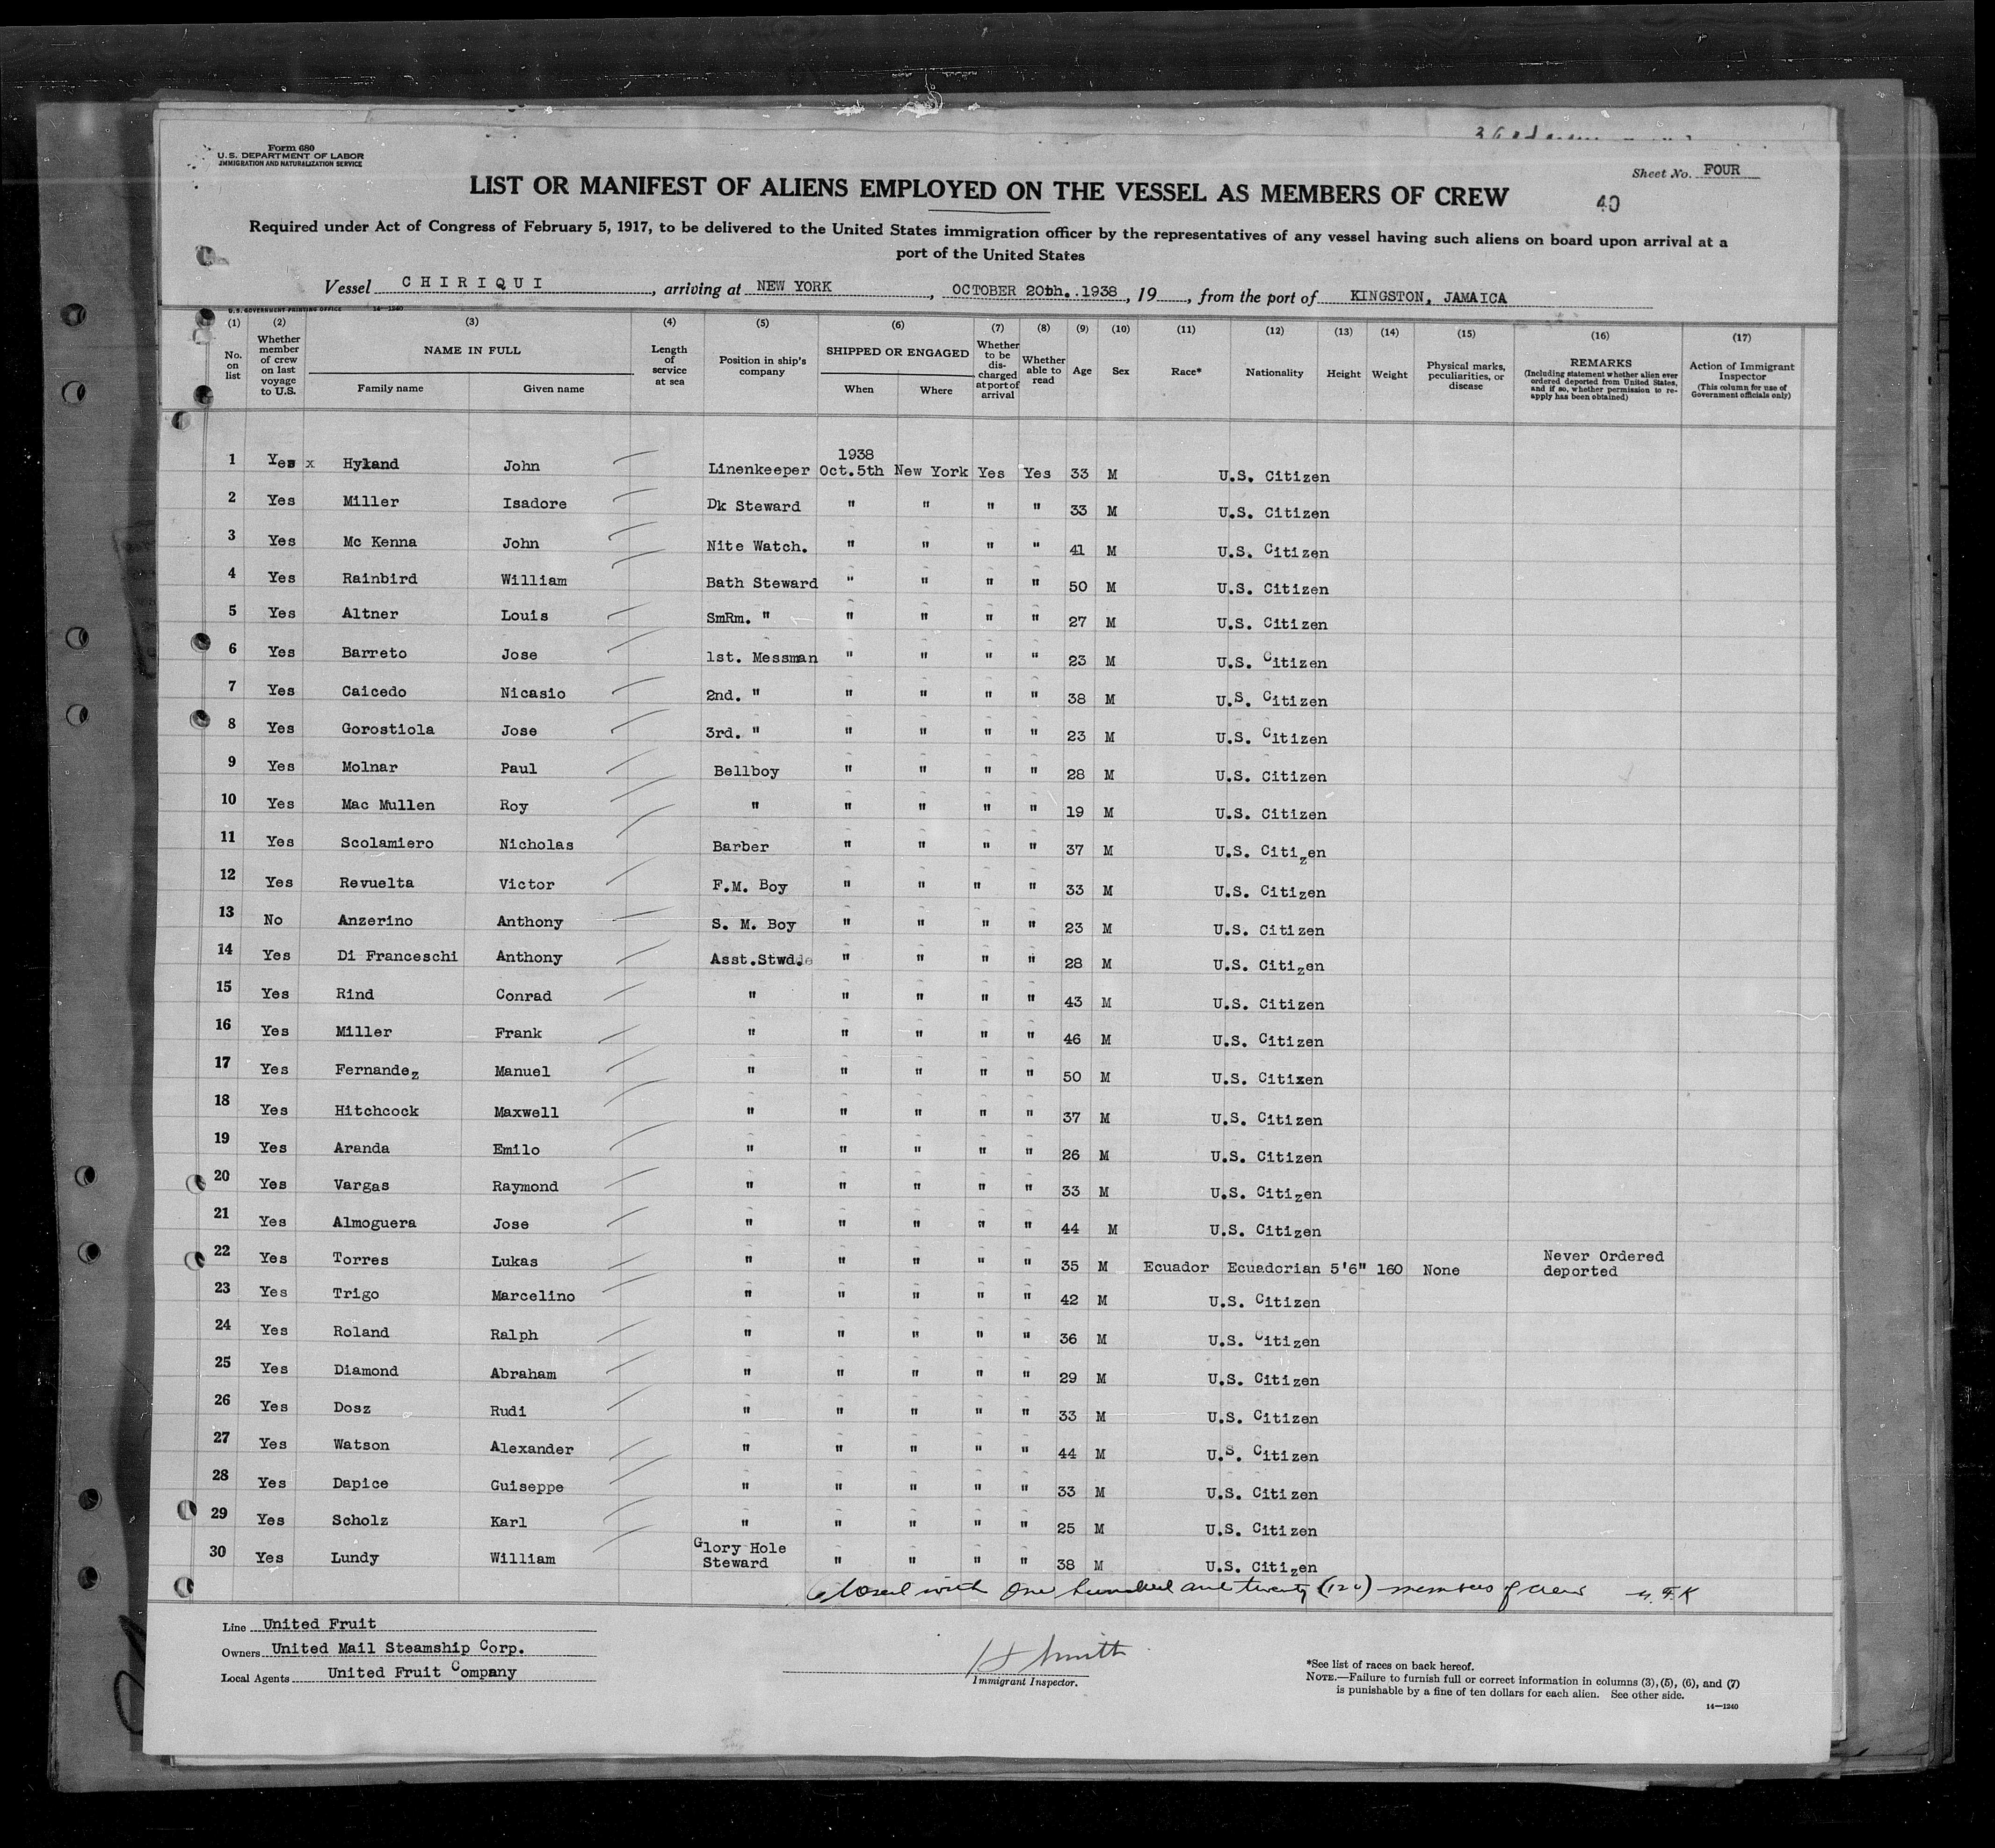 Form 680
U.S. DEPARTMENT OF LABOR
IMMIGRATION AND NATURALIZATION SERVICE
Sheet No. FOUR
LIST OR MANIFEST OF ALIENS EMPLOYED ON THE VESSEL AS MEMBERS OF CREW
40
Required under Act of Congress of February 5, 1917, to be delivered to the United States immigration officer by the representatives of any vessel having such aliens on board upon arrival at a
port of the United States
Vessel CHIRIQUI, arriving at NEW YORK, OCTOBER 20th. 1938, 19, from the port of KINGSTON, JAMAICA
U.S. GOVERNMENT PRINTING OFFICE 14—1240
(1) (2) (3) (4) (5) (6) (7) (8) (9) (10) (11) (12) (13) (14) (15) (16) (17)
No. on list
Whether member of crew on last voyage to U.S.
NAME IN FULL
Family name Given name
Length of service at sea
Position in ship's company
SHIPPED OR ENGAGED
When Where
Whether to be discharged at port of arrival
Whether able to read
Age Sex Race* Nationality Height Weight
Physical marks, peculiarities, or disease
REMARKS
(Including statement whether alien ever ordered deported from United States, and if so, whether permission to re-apply has been obtained)
Action of Immigrant Inspector
(This column for use of Government officials only)
1938
1 Yes x Hyland John Linenkeeper Oct.5th New York Yes Yes 33 M U.S. Citizen
2 Yes Miller Isadore Dk Steward " " " " 33 M U.S. Citizen
3 Yes Mc Kenna John Nite Watch. " " " " 41 M U.S. Citizen
4 Yes Rainbird William Bath Steward " " " " 50 M U.S. Citizen
5 Yes Altner Louis SmRm. " " " " " 27 M U.S. Citizen
6 Yes Barreto Jose 1st. Messman " " " " 23 M U.S. Citizen
7 Yes Caicedo Nicasio 2nd. " " " " " 38 M U.S. Citizen
8 Yes Gorostiola Jose 3rd. " " " " " 23 M U.S. Citizen
9 Yes Molnar Paul Bellboy " " " " 28 M U.S. Citizen
10 Yes Mac Mullen Roy " " " " " 19 M U.S. Citizen
11 Yes Scolamiero Nicholas Barber " " " " 37 M U.S. Citizen
12 Yes Revuelta Victor F.M. Boy " " " " 33 M U.S. Citizen
13 No Anzerino Anthony S. M. Boy " " " " 23 M U.S. Citizen
14 Yes Di Franceschi Anthony Asst.Stwd. " " " " 28 M U.S. Citizen
15 Yes Rind Conrad " " " " " 43 M U.S. Citizen
16 Yes Miller Frank " " " " " 46 M U.S. Citizen
17 Yes Fernandez Manuel " " " " " 50 M U.S. Citixen
18 Yes Hitchcock Maxwell " " " " " 37 M U.S. Citizen
19 Yes Aranda Emilo " " " " " 26 M U.S. Citizen
20 Yes Vargas Raymond " " " " " 33 M U.S. Citizen
21 Yes Almoguera Jose " " " " " 44 M U.S. Citizen
22 Yes Torres Lukas " " " " " 35 M Ecuador Ecuadorian 5'6" 160 None Never Ordered deported
23 Yes Trigo Marcelino " " " " " 42 M U.S. Citizen
24 Yes Roland Ralph " " " " " 36 M U.S. Citizen
25 Yes Diamond Abraham " " " " " 29 M U.S. Citizen
26 Yes Dosz Rudi " " " " " 33 M U.S. Citizen
27 Yes Watson Alexander " " " " " 44 M U.S. Citizen
28 Yes Dapice Guiseppe " " " " " 33 M U.S. Citizen
29 Yes Scholz Karl " " " " " 25 M U.S. Citizen
30 Yes Lundy William Glory Hole Steward " " " " 38 M U.S. Citizen
Closed with One hundred and twenty (120) members of crew
Line United Fruit
Owners United Mail Steamship Corp.
Local Agents United Fruit Company
H Smith
Immigrant Inspector.
*See list of races on back hereof.
NOTE.—Failure to furnish full or correct information in columns (3), (5), (6), and (7)
is punishable by a fine of ten dollars for each alien. See other side.
14—1240